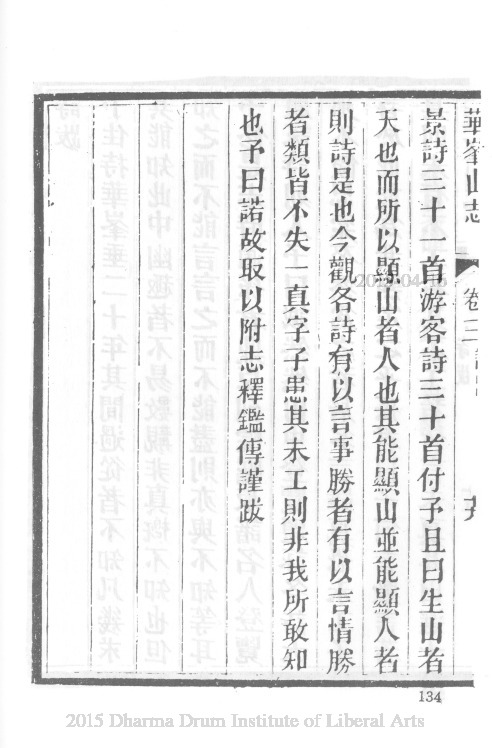 華峯山志
卷三
景詩三十一首游客詩三十首付予且曰生山者
天也而所以顯山者人也其能顯山並能顯人者
則詩是也今觀各詩有以言事勝者有以言情勝
者類皆不失一真字子患其未工則非我所敢知
也予曰諾故取以附志釋鑑傳謹跋
134
2015 Dharma Drum Institute of Liberal Arts